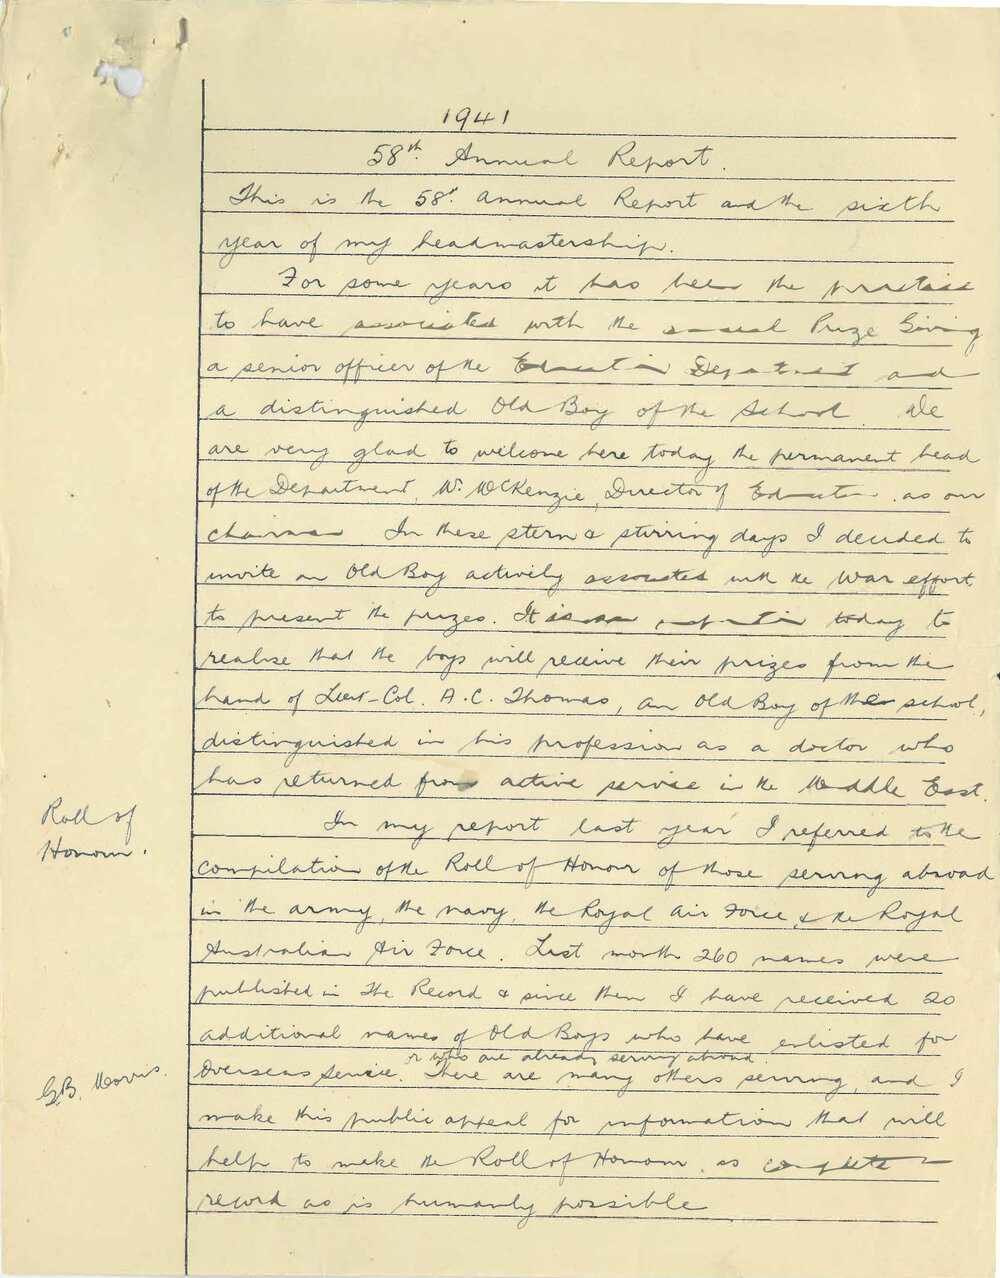 1941
58th Annual Report.
This is the 58th Annual Report and the sixth
year of my headmastership.
For some years it has been the practice
to have associated with the annual Prize Giving
a senior officer of the Education Department and
a distinguished Old Boy of the School. We
are very glad to welcome here today the permanent head
of the Department, Mr. McKenzie, Director of Education, as our
chairman. In these stern & stirring days I decided to
invite an Old Boy actively associated with the War effort
to present the prizes. It is an today to
realise that the boys will receive their prizes from the
hand of Lieut-Col. A.C. Thomas, an Old Boy of the school,
distinguished in his profession as a doctor who
has returned from active service in the Middle East.
Roll of
Honour.
In my report last year I referred to the
compilation of the Roll of Honour of those serving abroad
in the army, the navy, the Royal Air Force & the Royal
Australian Air Force. Last month 260 names were
published in The Record & since then I have received 20
additional names of Old Boys who have enlisted for
or who are already serving abroad.
G.B. Morris.
Overseas Service. There are many others serving, and I
make this public appeal for information that will
help to make the Roll of Honour as complete a
record as is humanly possible